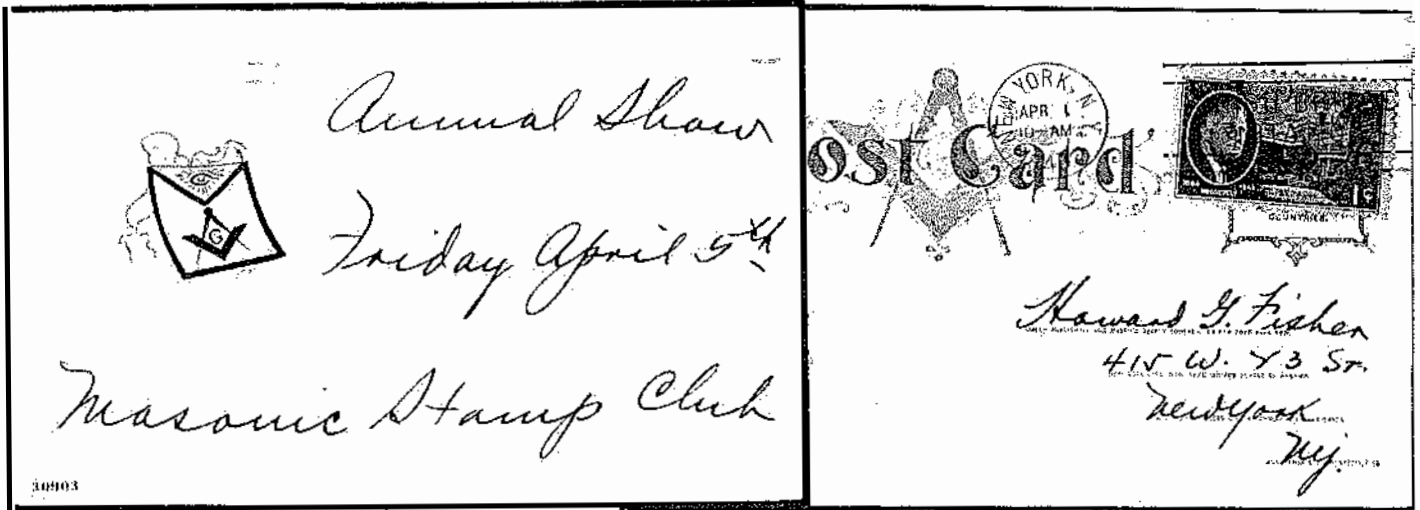 Annual Show
Friday April 5th
Masonic Stamp Club
G
30903
NEW YORK, N.Y.
APR 1
10 AM
ost Card
1¢
Howard G. Fisher
415 W. 23 St.
New York
NY.